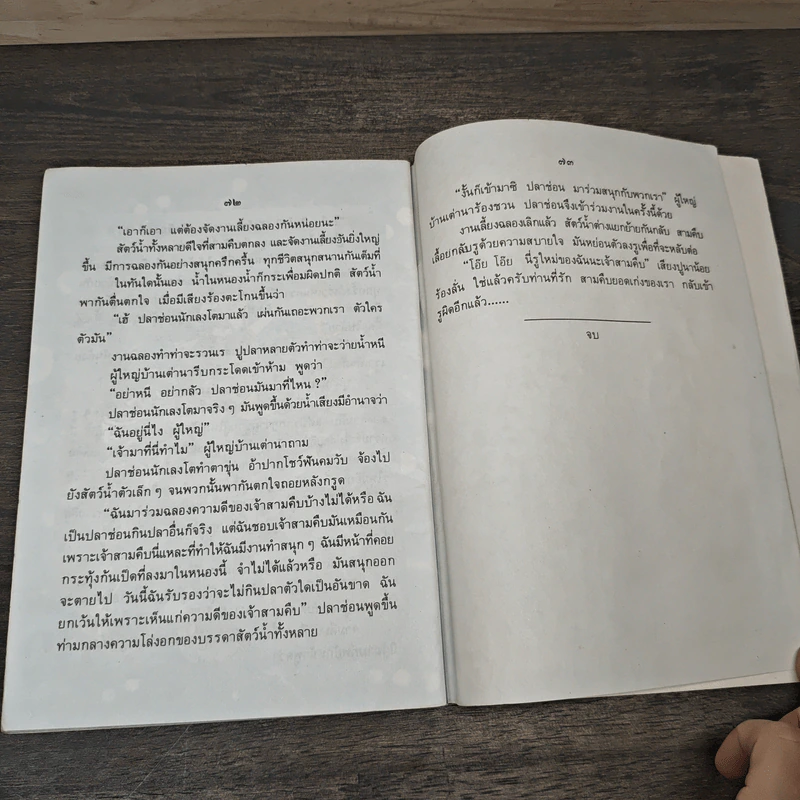 ๗๒
“เอาก็เอา แต่ต้องจัดงานเลี้ยงฉลองกันหน่อยนะ”
สัตว์น้ำทั้งหลายดีใจที่สามคืบตกลง และจัดงานเลี้ยงวันยิ่งใหญ่
ขึ้น มีการฉลองกันอย่างสนุกครึกครื้น ทุกชีวิตสนุกสนานกันเต็มที่
ในทันใดนั้นเอง น้ำในหนองน้ำก็กระเพื่อมผิดปกติ สัตว์น้ำ
พากันตื่นตกใจ เมื่อมีเสียงร้องตะโกนขึ้นว่า
“เฮ้ ปลาช่อนนักเลงโตมาแล้ว เผ่นกันเถอะพวกเรา ตัวใคร
ตัวมัน”
งานฉลองทำท่าจะรวนเร ปูปลาหลายตัวทำท่าจะว่ายน้ำหนี
ผู้ใหญ่บ้านเต่านารีบกระโดดเข้าห้าม พูดว่า
“อย่าหนี อย่ากลัว ปลาช่อนมันมาที่ไหน ?”
ปลาช่อนนักเลงโตมาจริง ๆ มันพูดขึ้นด้วยน้ำเสียงมีอำนาจว่า
“ฉันอยู่นี่ไง ผู้ใหญ่”
“เจ้ามาที่นี่ทำไม” ผู้ใหญ่บ้านเต่านาถาม
ปลาช่อนนักเลงโตทำตาขุ่น อ้าปากโชว์ฟันคมวับ จ้องไป
ยังสัตว์น้ำตัวเล็ก ๆ จนพวกนั้นพากันตกใจถอยหลังกรูด
“ฉันมาร่วมฉลองความดีของเจ้าสามคืบบ้างไม่ได้หรือ ฉัน
เป็นปลาช่อนกินปลาอื่นก็จริง แต่ฉันชอบเจ้าสามคืบมันเหมือนกัน
เพราะเจ้าสามคืบนี่แหละที่ทำให้ฉันมีงานทำสนุก ๆ ฉันมีหน้าที่คอย
กระทุ้งก้นเป็ดที่ลงมาในหนองนี้ จำไม่ได้แล้วหรือ มันสนุกออก
จะตายไป วันนี้ฉันรับรองว่าจะไม่กินปลาตัวใดเป็นอันขาด ฉัน
ยกเว้นให้เพราะเห็นแก่ความดีของเจ้าสามคืบ” ปลาช่อนพูดขึ้น
ท่ามกลางความโล่งอกของบรรดาสัตว์น้ำทั้งหลาย
๗๓
“งั้นก็เข้ามาซิ ปลาช่อน มาร่วมสนุกกับพวกเรา” ผู้ใหญ่
บ้านเต่านาร้องชวน ปลาช่อนจึงเข้าร่วมงานในครั้งนี้ด้วย
งานเลี้ยงฉลองเลิกแล้ว สัตว์น้ำต่างแยกย้ายกันกลับ สามคืบ
เลื้อยกลับรูด้วยความสบายใจ มันหย่อนตัวลงรูเพื่อที่จะหลับต่อ
“โอ๊ย โอ๊ย นี่รูใหม่ของฉันนะเจ้าสามคืบ” เสียงปูนาน้อย
ร้องลั่น ใช่แล้วครับท่านที่รัก สามคืบยอดเก่งของเรา กลับเข้า
รูผิดอีกแล้ว......
จบ